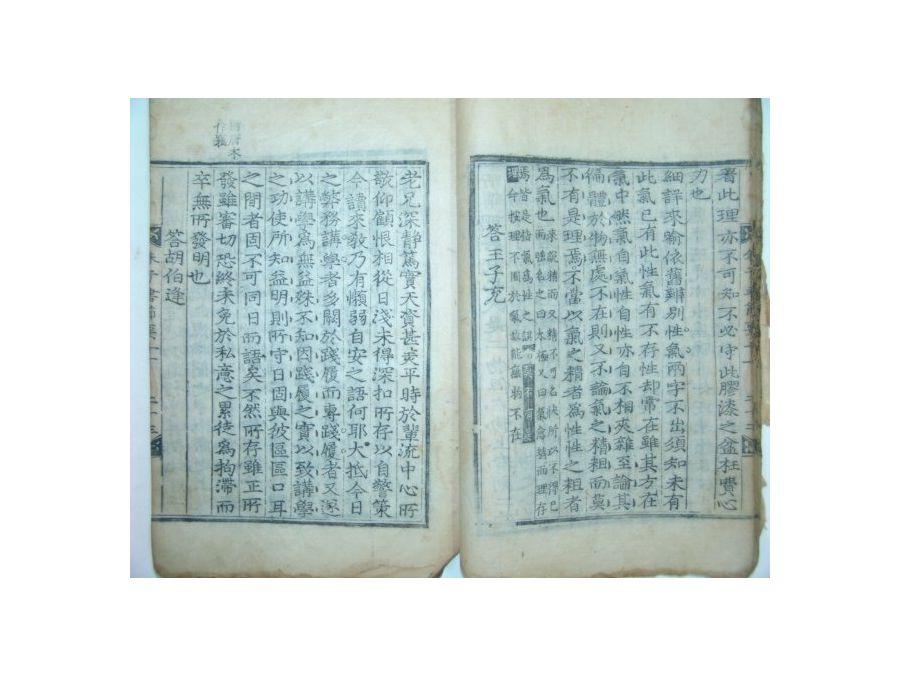 看此理亦不可知不必守此膠漆之盆枉費心
力也
細詳來喻依舊辨別性氣兩字不出須知未有
此氣已有此性氣有不存性却常在雖其方在
氣中然氣自氣性自性亦自不相夾雜至論其
徧體於物無處不在則又不論氣之精粗而莫
不有是理焉不當以氣之精者為性性之粗者
為氣也
答王子充
老兄深靜篤實天資甚美平時於輩流中心所
敬仰顧恨相從日淺未得深扣所存以自警策
今讀來敎乃有懶弱自安之語何耶大抵今日
之弊務講學者多闕於踐履而專踐履者又遂
以講學為無益殊不知因踐履之實以致講學
之功使所知益明則所守日固與彼區區口耳
之間者固不可同日而語矣不然所存雖正所
發雖審切恐終未免於私意之累徒為拘滯而
卒無所發明也
答胡伯逢